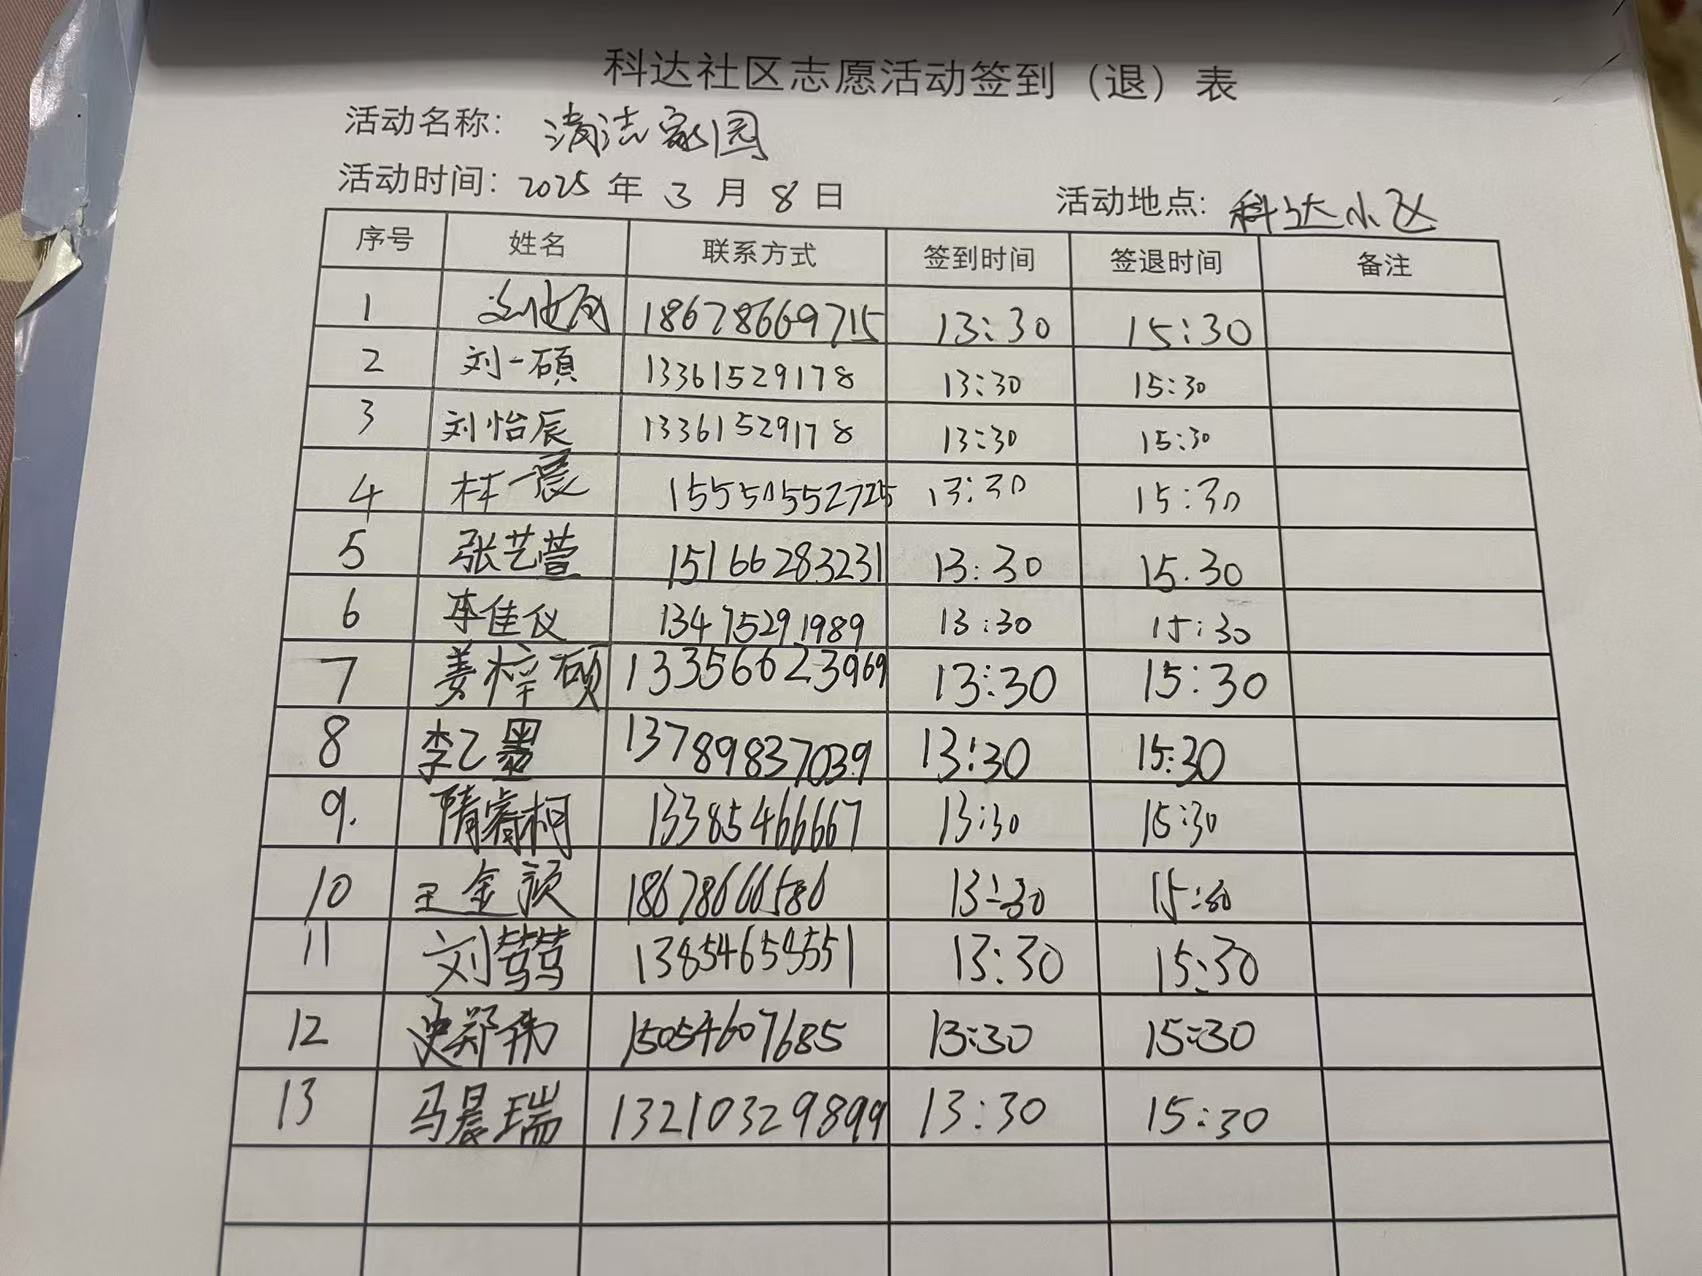 科达社区志愿活动签到（退）表
活动名称：清洁家园
活动时间：2025 年 3 月 8 日 活动地点：科达小区
序号 姓名 联系方式 签到时间 签退时间 备注
1 18678669715 13:30 15:30
2 刘一硕 13361529178 13:30 15:30
3 刘怡辰 13361529178 13:30 15:30
4 林一宸 15550552725 13:30 15:30
5 张艺萱 15166283231 13:30 15.30
6 李佳仪 13475291989 13:30 15:30
7 姜梓硕 13356623969 13:30 15:30
8 李乙墨 13789837039 13:30 15:30
9. 隋睿柯 13385466667 13:30 15:30
10 王金颖 18678666586 13:30 15:30
11 刘笃笃 13:30 15:30
12 史郑伟 15054607685 13:30 15:30
13 马晨瑞 13210329899 13:30 15:30